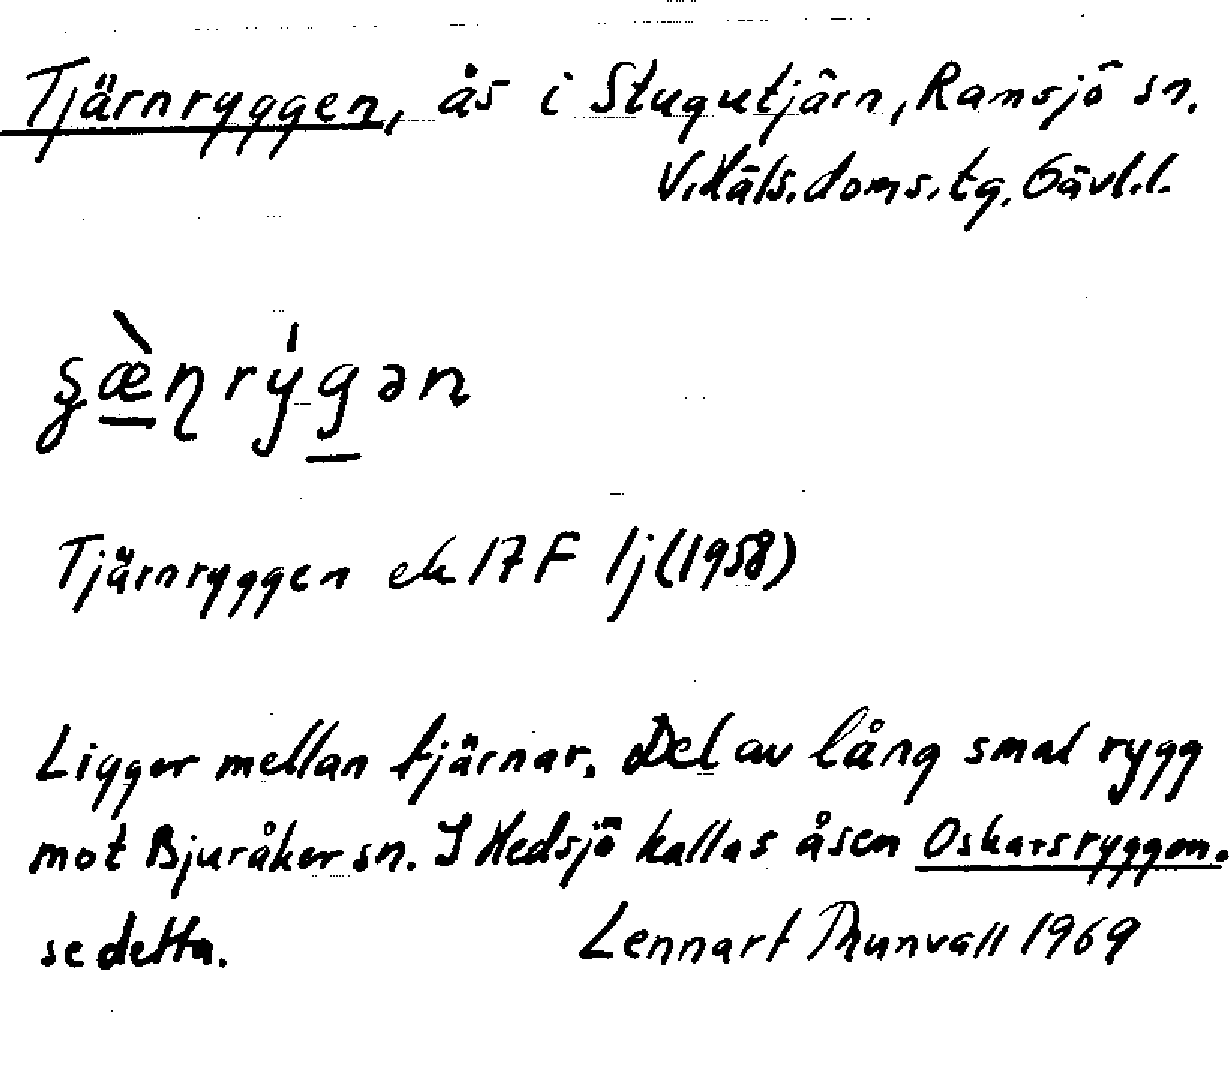 Tjärnryggen, ås i Stugutjärn, Ramsjö sn.
V. Häls. doms. tg. Gävl. l.
Tjärnryggen ek 17 F 1j (1958)
Ligger mellan tjärnar. Del av lång smal rygg
mot Bjuråker sn. I Hedsjö kallas åsen Oskarsryggen.
se detta. Lennart Thunvall 1969